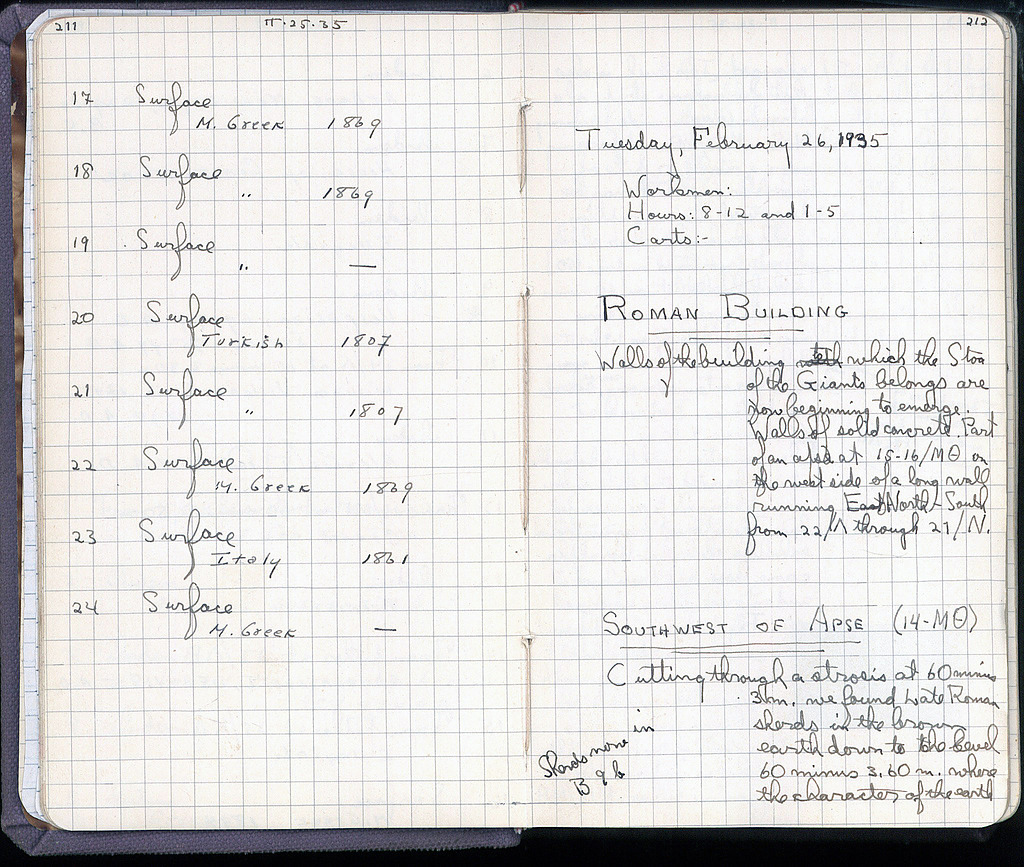 211
II·25·35
17 Surface
M. Greek 1869
18 Surface
" 1869
19 Surface
" —
20 Surface
Turkish 1807
21 Surface
" 1807
22 Surface
M. Greek 1869
23 Surface
Italy 1861
24 Surface
M. Greek —
212
Tuesday, February 26, 1935
Workmen:
Hours: 8-12 and 1-5
Carts:-
ROMAN BUILDING
Walls of the building to which the Stoa
of the Giants belongs are
now beginning to emerge.
Walls of solid concrete. Part
of an apse at 15-16/ΜΘ on
the west side of a long wall
running North-South
from 22/Λ through 21/Ν.
SOUTHWEST OF APSE (14-ΜΘ)
Cutting through a strosis at 60 minus
3 m. we found Late Roman
sherds in the brown
earth down to the level
60 minus 3.60 m. where
the character of the earth
Sherds now in
B